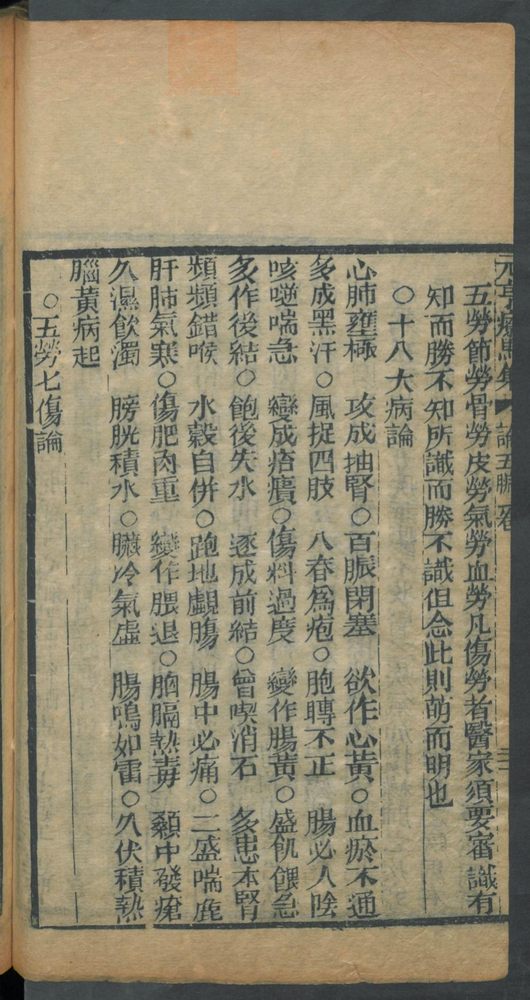 元亨療馬集 論五臟卷
五勞節勞骨勞皮勞氣勞血勞凡傷勞者醫家須要審識有
知而勝不知所識而勝不識但念此則萌而明也
○十八大病論
心肺壅極 攻成抽腎○百脈閉塞 欲作心黃○血瘀不通
多成黑汗○風捉四肢 八春爲疱○胞轉不正 腸必入陰
咳𠾱喘急 變成痞癀○傷料過度 變作腸黃○盛飢餵急
多作後結○飽後失水 逐成前結○曾喫消石 多患本腎
頻頻錯喉 水穀自併○跑地䠞腸 腸中必痛○二盛喘麄
肝肺氣寒○傷肥肉重 變作腲退○胸膈熱毒 顙中發瘡
久濕飲濁 膀胱積水○臟冷氣虛 腸鳴如雷○久伏積熱
腦黃病起
○五勞七傷論